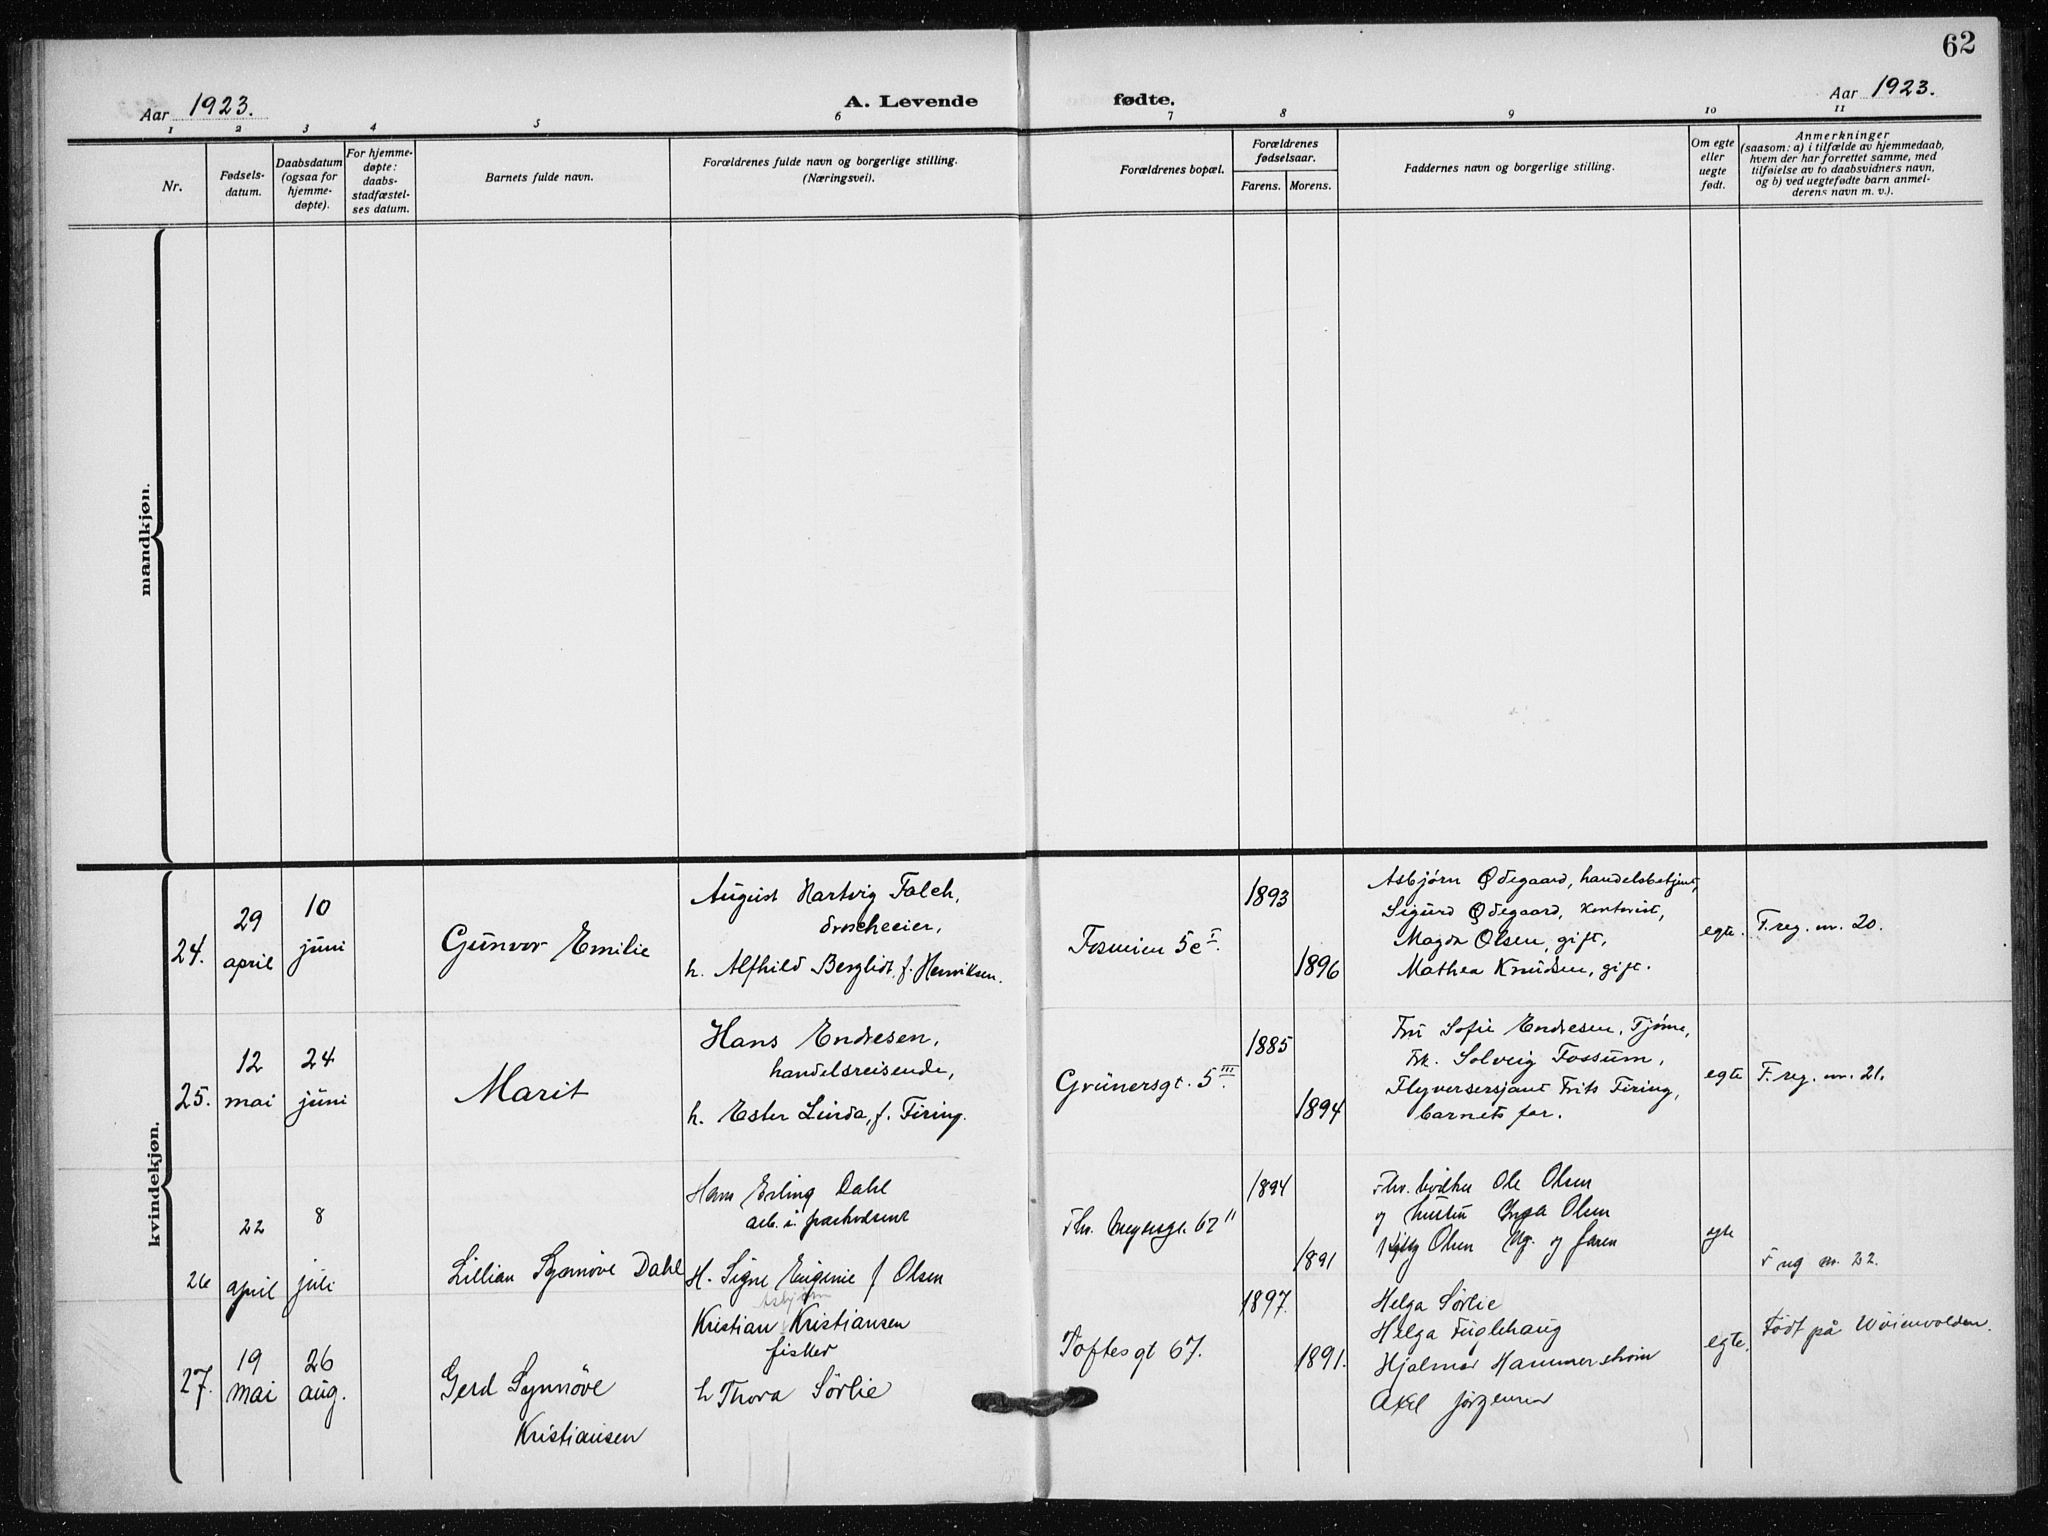 62
Aar 1923.
A. Levende fødte.
Aar 1923.
1 2 3 4 5 6 7 8 9 10 11
Nr.
Fødsels-
datum.
Daabsdatum
(ogsaa for
hjemme-
døpte).
For hjemme-
døpte:
daabs-
stadfæstel-
ses datum.
Barnets fulde navn.
Forældrenes fulde navn og borgerlige stilling.
(Næringsvei).
Forældrenes bopæl.
Forældrenes
fødselsaar.
Farens. Morens.
Faddernes navn og borgerlige stilling.
Om egte
eller
uegte
født.
Anmerkninger
(saasom: a) i tilfælde av hjemmedaab,
hvem der har forrettet samme, med
tilføielse av to daabsvidners navn,
og b) ved uegtefødte barn anmel-
derens navn m. v.).
mandkjøn.
kvindekjøn.
24.
29
april
10
juni
Gunvor Emilie
August Hartvig Falch,
droscheeier,
h. Alfhild Bergliot, f. Henriksen.
5c I.
1893
1896
Asbjørn Ødegaard, handelsbetjent,
Sigurd Ødegaard, kontorist,
Magda Olsen, gift,
Mathea Knudsen, gift.
egte.
F. reg. nr. 20.
25.
12
mai
24
juni
Marit
Hans Endresen,
handelsreisende,
h. Ester Linda, f. Firing.
Grünersgt. 5 III.
1885
1894
Fru Sofie Endresen, Tjøme,
Frk. Solveig Fossum,
Flyversersjant Frits Firing,
barnets far.
egte
F. reg. nr. 21.
26
22
april
8
juli
Lillian Synnøve Dahl
Hans Erling Dahl
arb. i
H. Signe Eugenie f Olsen
Thv. Meyersgt. 67 II
1894
1891
Ole Olsen
og hustru Inga Olsen
Olsen Ug. og faren
egte
F reg nr. 22.
27.
19
mai
26
aug.
Gerd Synnöve
Kristiansen
Asbjørn
Kristian Kristiansen
fisker
h Thora Sörlie
Toftesgt 67.
1897.
1891.
Helga Sörlie
Helga Fuglehaug
Hjalmar Hammerstrøm
Axel Jörgensen
egte.
Født på Wöienvolden.